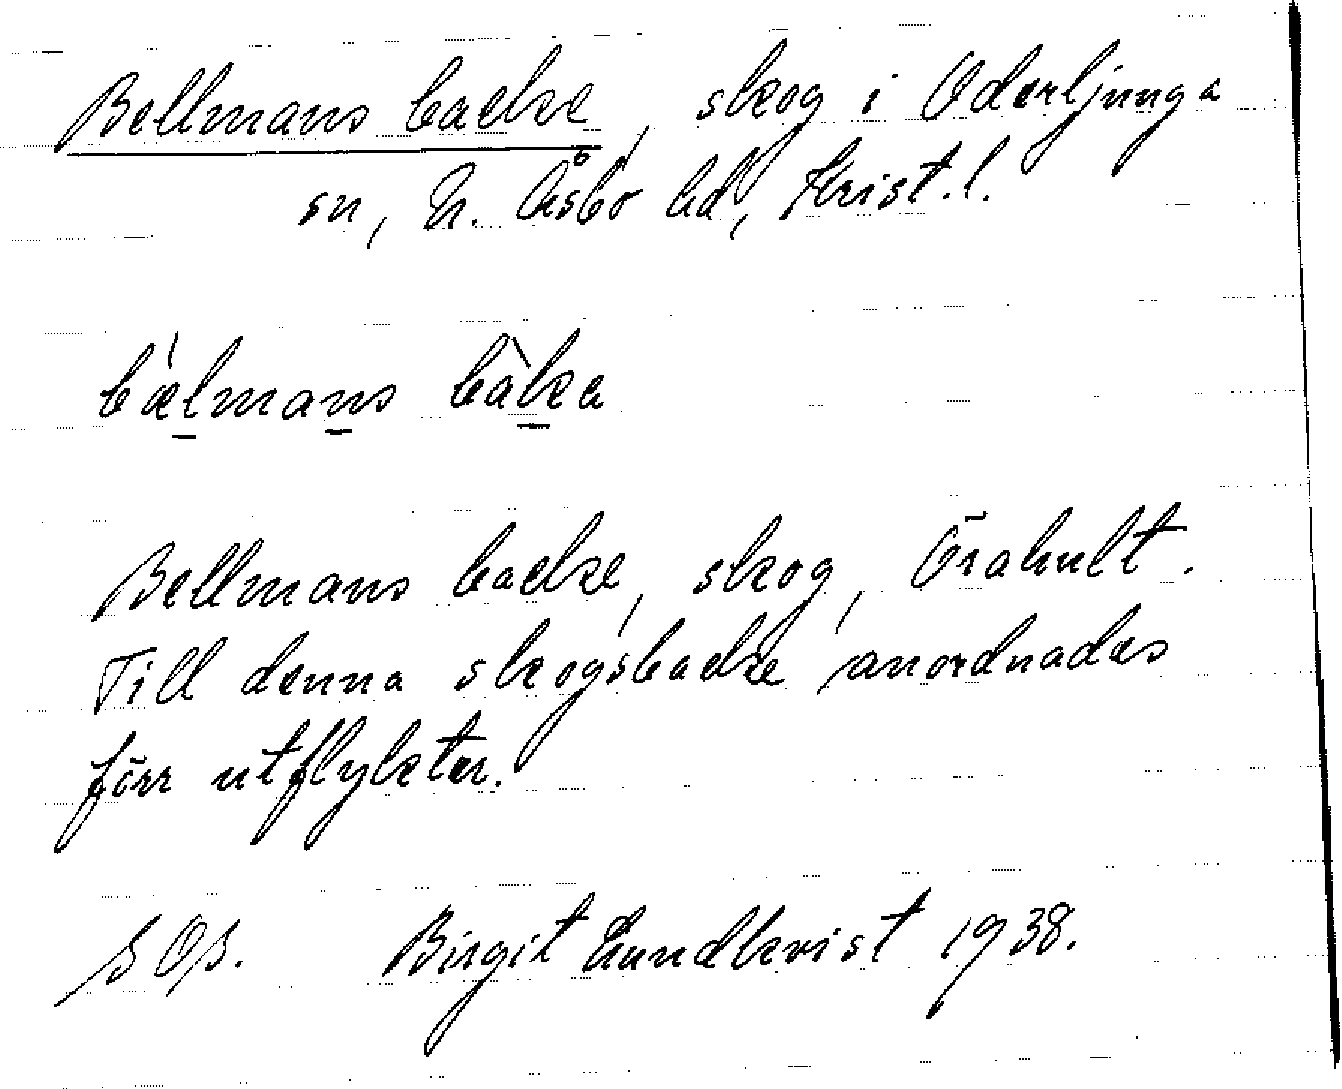 Bellmans backe, skog i Oderljunga
sn, N. Åsbo hd, Krist. l.
bælmans baka
Bellmans backe, skog, Örahult.
Till denna skogsbacke anordnades
förr utflykter.
Birgit Lundkvist 1938.